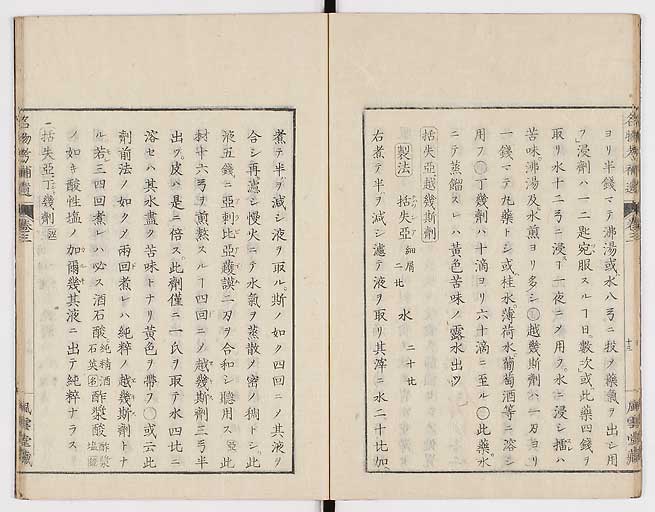 ヨリ半錢マテ沸湯或水八弓ニ投ノ藥氣ヲ出シ用
フ浸劑ハ一二匙宛服スルヿ日數次或此藥四錢ヲ
取リ水十二弓ニ浸スヿ一夜ニノ用フ水ニ浸シ擂ハ
苦味沸湯及水煎ヨリ多シ○越幾斯劑ハ一刃ヨリ
一錢マテ丸藥トシ或桂水薄荷水葡萄酒等ニ溶シ
用フ○丁幾劑ハ十滴ヨリ六十滴ニ至ル○此藥水
ニテ蒸餾スレハ黃色苦味ノ露水出ツ
括失亞越幾斯劑
製法 括失亞 細屑 二比 水 二十比
右煮テ半ヲ減シ濾テ液ヲ取リ其滓ニ水二十比加
煮テ半ヲ減シ液ヲ取ル斯ノ如ク四回ニノ其液ヲ
合シ再濾シ慢火ニテ水氣ヲ蒸散ノ密ノ稠トシ此
液五錢ニ亞剌比亞護謨二刃ヲ合和シ聽用ス亞此
材十六弓ヲ煎熬スルヿ四回ニノ越幾斯劑三弓半
出ツ皮ハ是ニ倍ス此劑僅ニ一氏ヲ取テ水四比ニ
溶セハ其水盡ク苦味トナリ黃色ヲ帶フ○或云此
劑前法ノ如クメ兩回煮レハ純粹ノ越幾斯劑トナ
ル若三四回煮レハ必ス酒石酸 純精酒石英名 酢漿酸 酢漿塩
ノ如キ酸性塩ノ加爾幾其液ニ出テ純粹ナラス
括失亞丁幾劑
名物考補遺 卷三
風雲堂藏